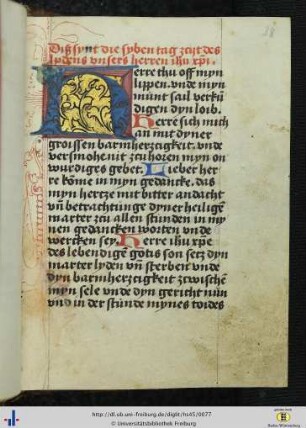 Diß synt die syben tag zcut des
lydens vnsers herren ihu xpi.
Herre thu off myn
lippen. vnde myn
munt sail verkū
digen dyn lob.
Herre sich mich
an mit dyner
groissen barmherzcigkeit. vnde
versmohe nit zcu horen myn on
wurdiges gebet. Lieber her
re kōme in myn gedancke. das
myn hertze mit bitter andacht
vn̄ betrachtunge dyner heilige
marter zcu allen stunden in my
nen gedancken worten vnde
wercken sey. Herre ihu xpē
des lebendigē gotis son setz dyn
marter lyden vn̄ sterben vnde
dyn barmherzcigkeit zwischē
myn sele vnde dyn gericht nūn
vnd in der stūnde mynes toides
http://dl.ub.uni-freiburg.de/diglit/hs45/0077
© Universitätsbibliothek Freiburg
Baden-Württemberg